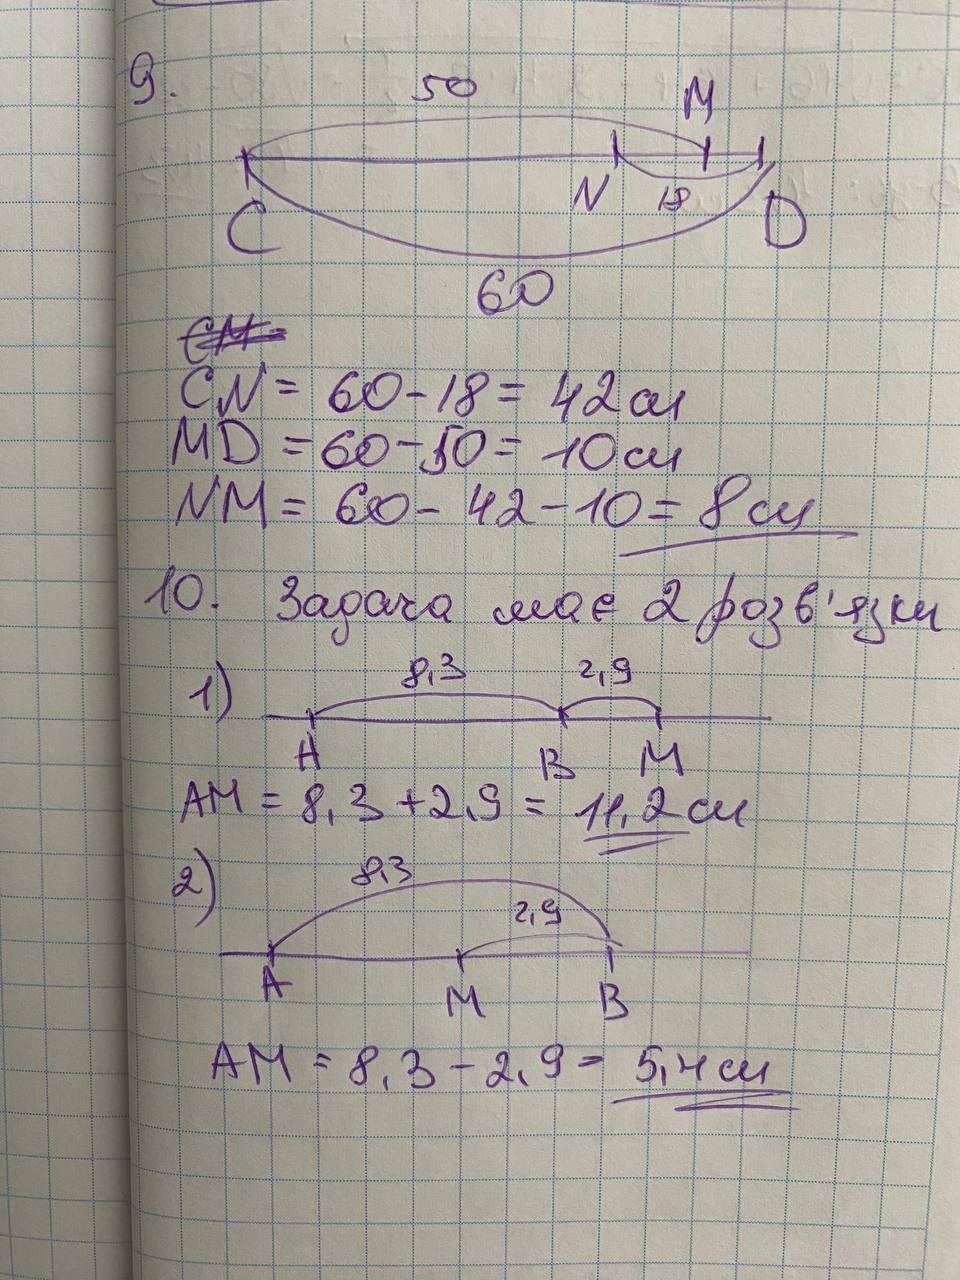 9.
50
M
N
18
C
D
60
CM =
CN = 60 - 18 = 42 см
MD = 60 - 50 = 10 см
NM = 60 - 42 - 10 = 8 см
10. Задача має 2 розв'язки
1)
8,3 2,9
A B M
AM = 8,3 + 2,9 = 11,2 см
2)
8,3
2,9
A M B
AM = 8,3 - 2,9 = 5,4 см